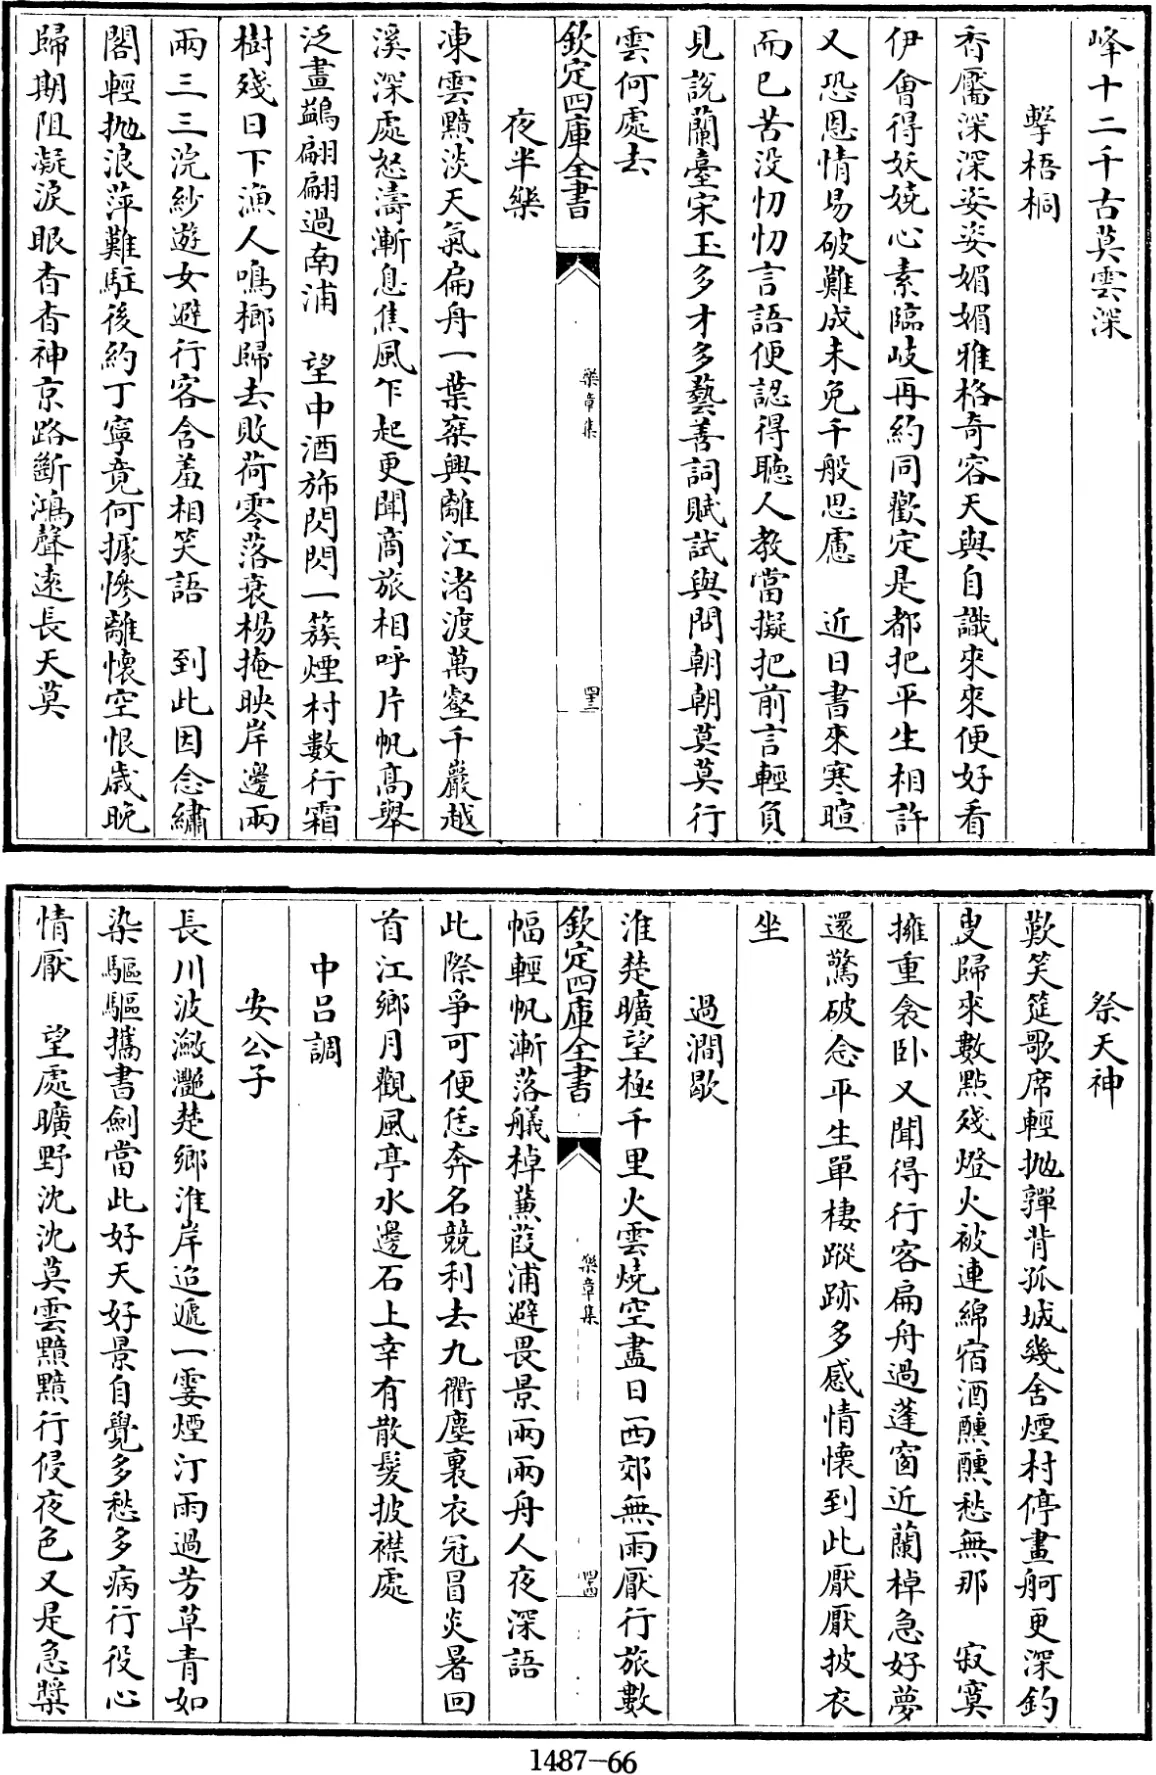 峰十二千古莫雲深
擊梧桐
香靨深深姿姿媚媚雅格奇容天與自識來來便好看
伊會得妖嬈心素臨岐再約同歡定是都把平生相許
又恐恩情易破難成未免千般思慮　近日書來寒暄
而已苦没忉忉言語便認得聽人教當擬把前言輕負
見說蘭臺宋玉多才多藝善詞賦試與問朝朝莫莫行
雲何處去
欽定四庫全書
樂章集
四三
夜半樂
凍雲黯淡天氣扁舟一葉乘興離江渚渡萬壑千巖越
溪深處怒濤漸息焦風乍起更聞商旅相呼片帆高舉
泛畫鷁翩翩過南浦　望中酒斾閃閃一簇煙村數行霜
樹殘日下漁人鳴榔歸去敗荷零落衰楊掩映岸邊兩
兩三三浣紗遊女避行客含羞相笑語　到此因念繡
閣輕抛浪萍難駐後約丁寧竟何據慘離懷空恨歲晚
歸期阻凝淚眼杳杳神京路斷鴻聲遠長天莫
祭天神
歎笑筵歌席輕抛嚲背孤城幾舍煙村停畫舸更深釣
叟歸來數㸃殘燈火被連綿宿酒醺醺愁無那　寂寞
擁重衾卧又聞得行客扁舟過蓬窗近蘭棹急好夢
還驚破念平生單棲蹤跡多感情懷到此厭厭披衣
坐
過澗歇
淮楚曠望極千里火雲燒空盡日西郊無雨厭行旅數
欽定四庫全書
樂章集
四四
幅輕帆漸落艤棹蒹葭浦避畏景兩兩舟人夜深語
此際爭可便恁奔名競利去九衢塵裏衣冠冒炎暑回
首江鄉月觀風亭水邊石上幸有散髮披襟處
中吕調
安公子
長川波瀲灩楚鄉淮岸迢遞一霎煙汀雨過芳草青如
染驅驅攜書劍當此好天好景自覺多愁多病行役心
情厭　望處曠野沈沈莫雲黯黯行侵夜色又是急槳
1487-66